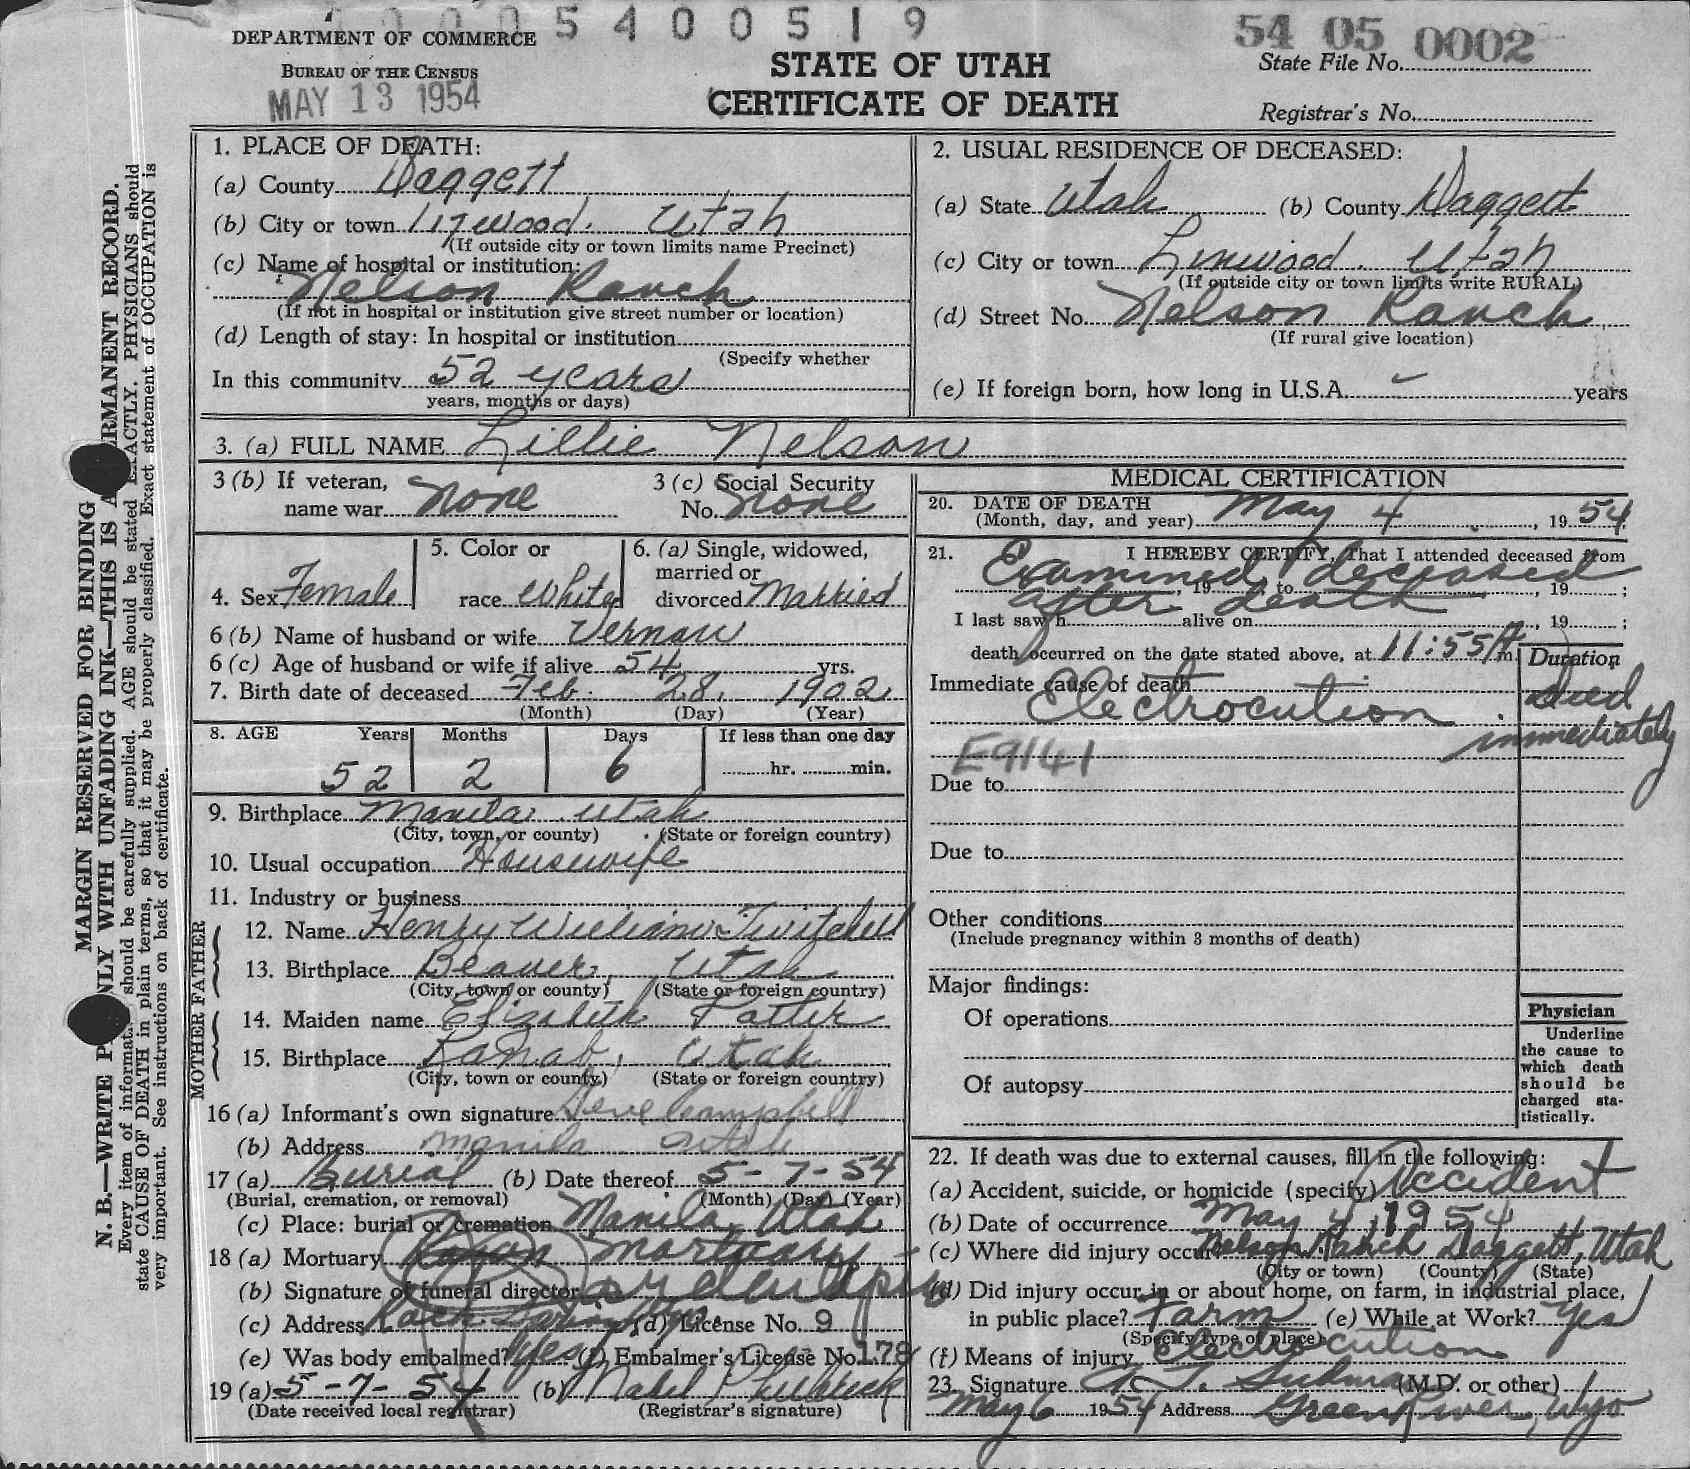 0000 5 4 0 0 5 1 9
54 05 0002
DEPARTMENT OF COMMERCE
BUREAU OF THE CENSUS
MAY 13 1954
STATE OF UTAH
CERTIFICATE OF DEATH
State File No.
Registrar's No.
MARGIN RESERVED FOR BINDING
N. B.—WRITE P NLY WITH UNFADING INK—THIS IS A RMANENT RECORD.
Every item of informat should be carefully supplied. AGE should be stated EXACTLY. PHYSICIANS should
state CAUSE OF DEATH in plain terms, so that it may be properly classified. Exact statement of OCCUPATION is
very important. See instructions on back of certificate.
1. PLACE OF DEATH:
(a) County Daggett
(b) City or town Linwood, Utah
(If outside city or town limits name Precinct)
(c) Name of hospital or institution:
Nelson Ranch
(If not in hospital or institution give street number or location)
(d) Length of stay: In hospital or institution
(Specify whether
In this community 52 years
years, months or days)
2. USUAL RESIDENCE OF DECEASED:
(a) State Utah (b) County Daggett
(c) City or town Linwood, Utah
(If outside city or town limits write RURAL)
(d) Street No. Nelson Ranch
(If rural give location)
(e) If foreign born, how long in U.S.A. years
3. (a) FULL NAME Lillie Nelson
3 (b) If veteran, name war None
3 (c) Social Security No. None
4. Sex Female
5. Color or race White
6. (a) Single, widowed, married or divorced Married
6 (b) Name of husband or wife Vernau
6 (c) Age of husband or wife if alive 54 yrs.
7. Birth date of deceased Feb. 28, 1902
(Month) (Day) (Year)
8. AGE Years Months Days If less than one day
52 2 6 hr. min.
9. Birthplace Manila Utah
(City, town, or county) (State or foreign country)
10. Usual occupation Housewife
11. Industry or business
FATHER
12. Name Henry William Twitchell
13. Birthplace Beaver, Utah
(City, town or county) (State or foreign country)
MOTHER
14. Maiden name Elizabeth Potter
15. Birthplace Kanab, Utah
(City, town or county) (State or foreign country)
16 (a) Informant's own signature Campbell
(b) Address Manila Utah
17 (a) Burial (b) Date thereof 5-7-54
(Burial, cremation, or removal) (Month) (Day) (Year)
(c) Place: burial or cremation Manila, Utah
18 (a) Mortuary Mortuary
(b) Signature of funeral director
(c) Address Rock Springs Wyo. (d) License No. 9
(e) Was body embalmed? yes (f) Embalmer's License No. 178
19 (a) 5-7-54 (b) Mabel
(Date received local registrar) (Registrar's signature)
MEDICAL CERTIFICATION
20. DATE OF DEATH
(Month, day, and year) May 4, 19 54
21. I HEREBY CERTIFY, That I attended deceased from
Examined deceased
, 19 , to , 19 ;
after death
I last saw h alive on , 19 ;
death occurred on the date stated above, at 11:55 A m.
Duration
Immediate cause of death
Electrocution
Died immediately
E9141
Due to
Due to
Other conditions
(Include pregnancy within 3 months of death)
Major findings:
Of operations
Of autopsy
Physician
Underline the cause to which death should be charged statistically.
22. If death was due to external causes, fill in the following:
(a) Accident, suicide, or homicide (specify) Accident
(b) Date of occurrence May 4, 1954
(c) Where did injury occur Nelson Ranch Daggett, Utah
(City or town) (County) (State)
(d) Did injury occur in or about home, on farm, in industrial place,
in public place? Farm (e) While at Work? Yes
(Specify type of place)
(f) Means of injury Electrocution
23. Signature (M.D. or other)
May 6 1954 Address Green River, Wyo